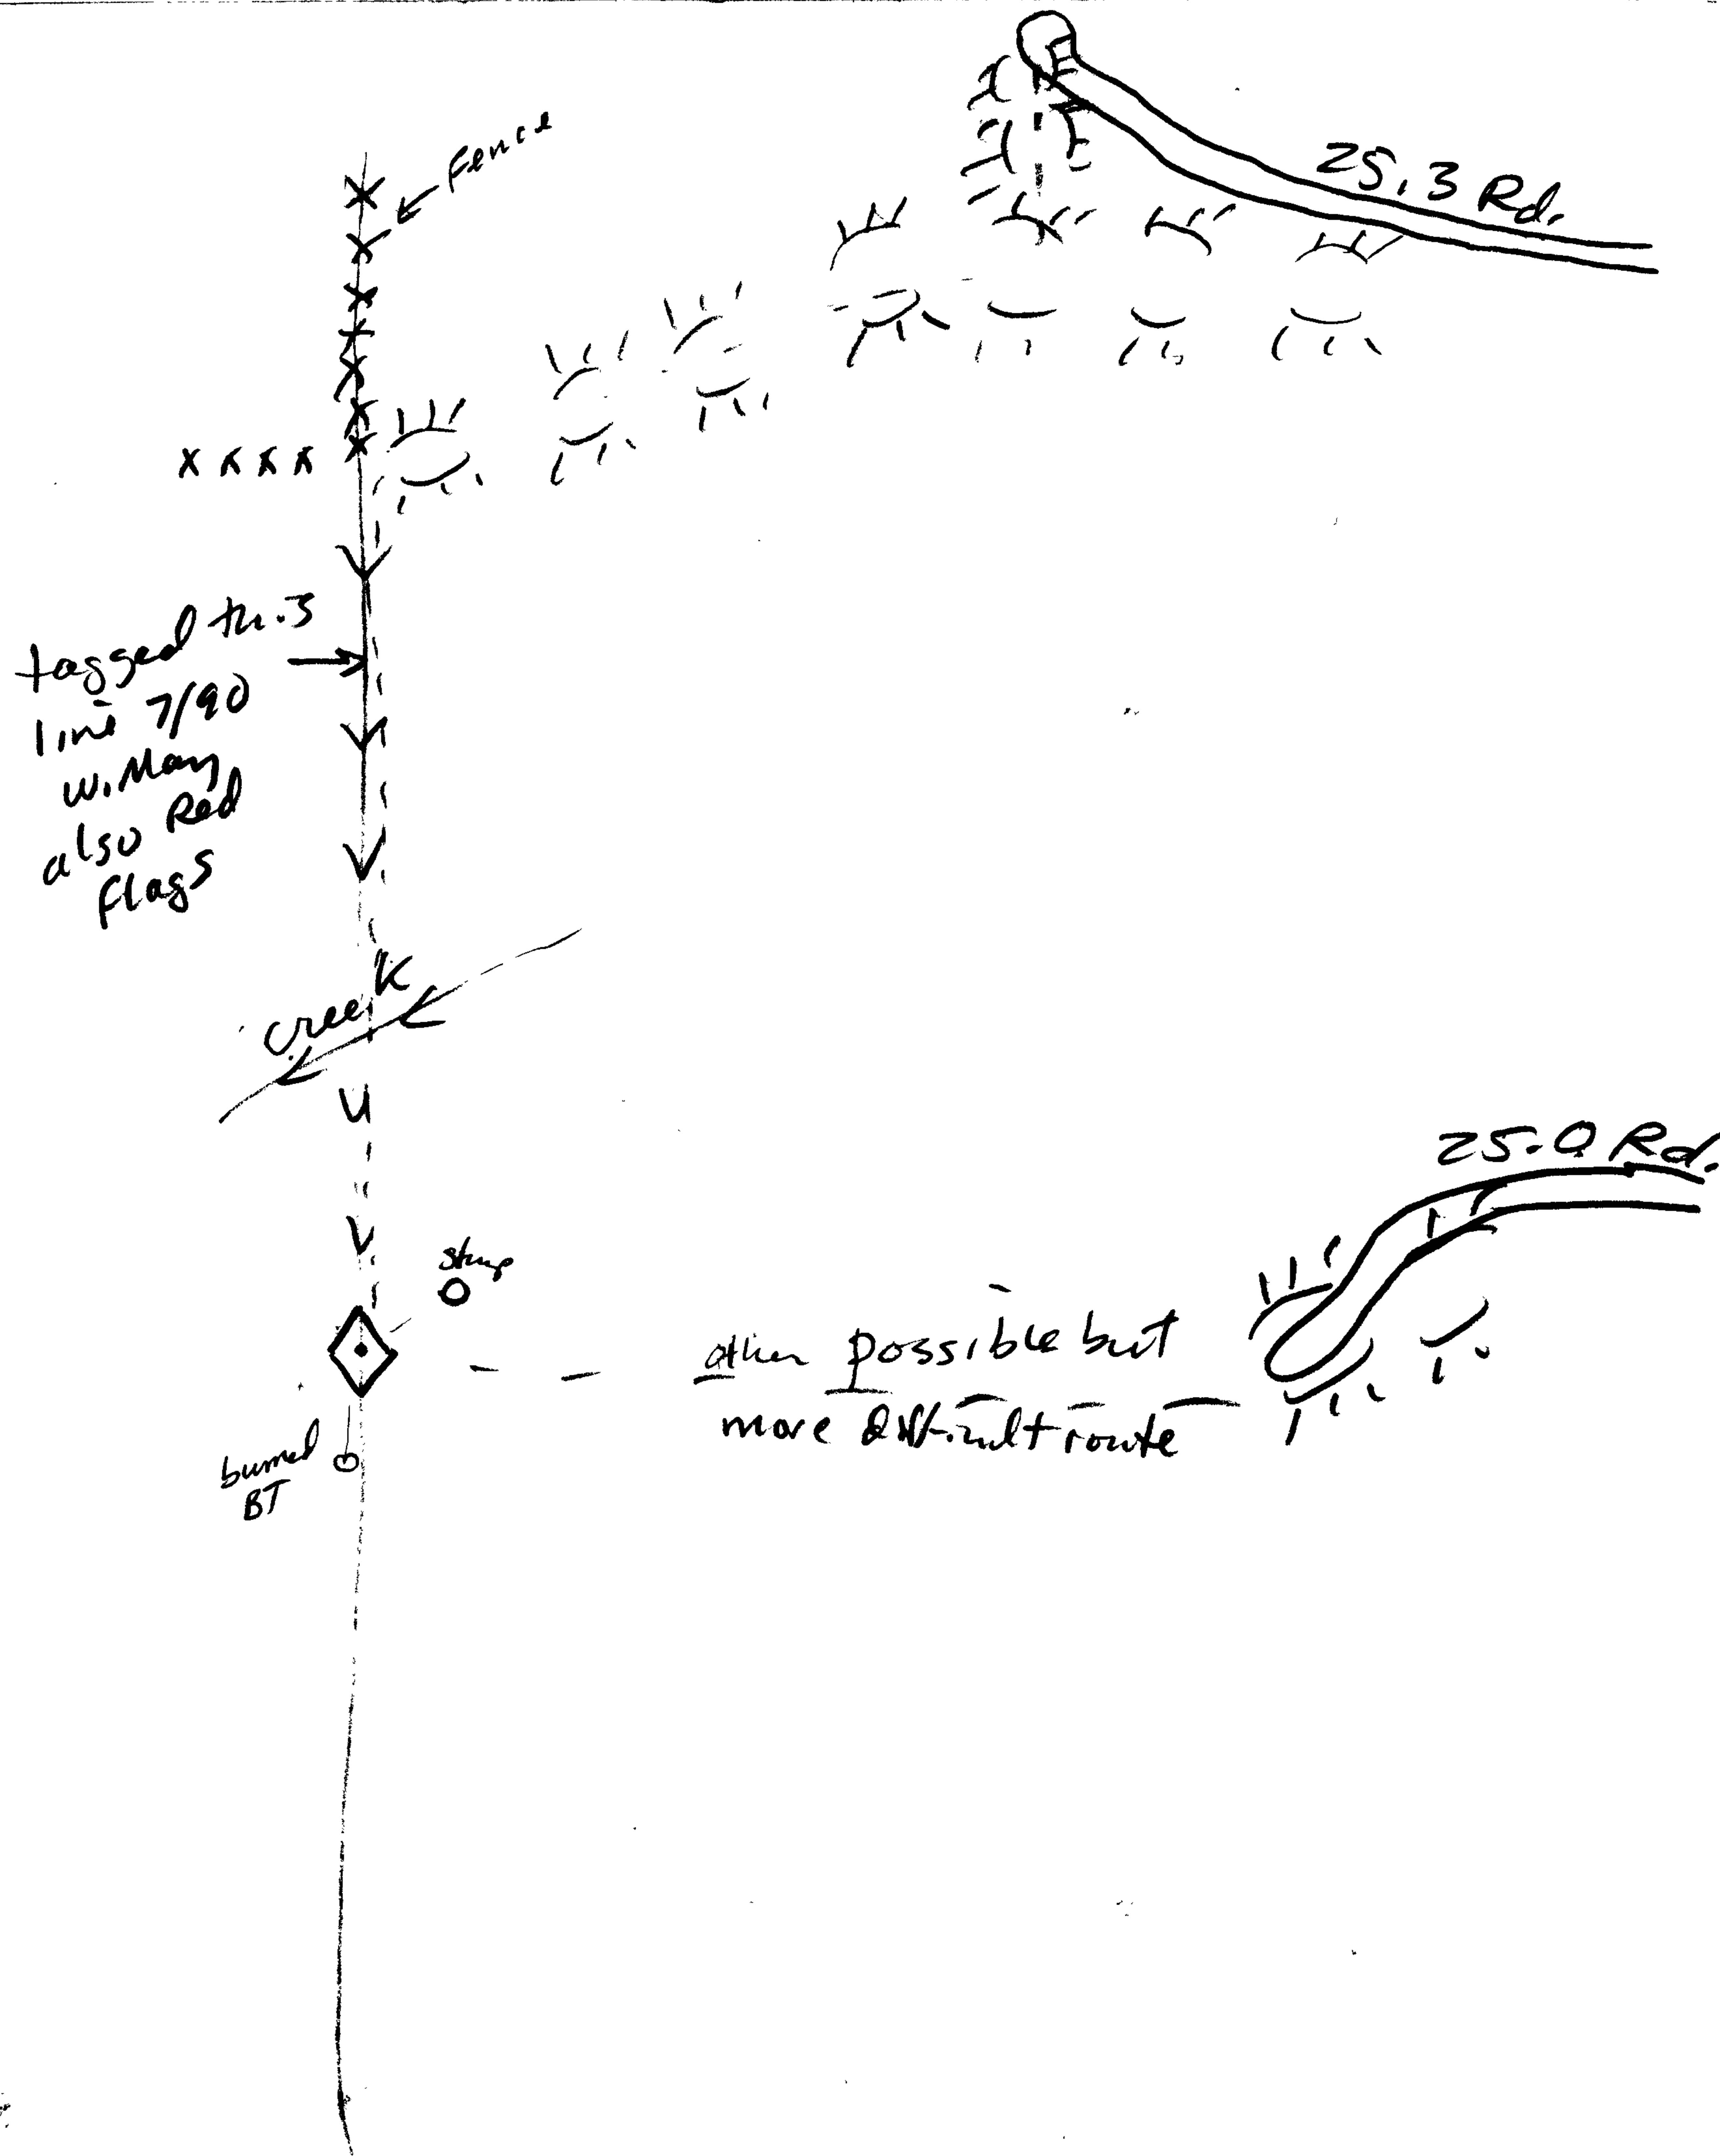 25.3 Rd.
fence
x x x x
tagged this
line 7/90
w. May
also Red
flags
creek
25.0 Rd.
stump
other possible but
more difficult route
burned
BT